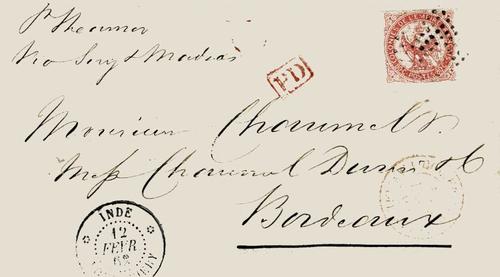 Pr Steamer
Via Suez & Madras
PD
COLONIES DE L'EMPIRE
POSTES
Monsieur Chaumel
Mess Chaumel Durin & Co
Bordeaux
INDE
12
FEVR
62